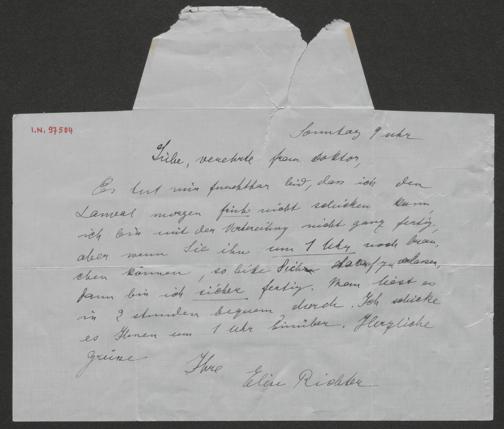 I.N. 97504
Sonntag 9 Uhr
Liebe, verehrte Frau Doktor,
Es tut mir furchtbar leid, dass ich den
morgen früh nicht schicken kann,
ich bin mit der Vorbereitung nicht ganz fertig,
aber wenn Sie ihn um 1 Uhr noch brau-
chen können, so bitte
dann bin ich sicher fertig. Man liest es
in 2 Stunden bequem durch. Ich schicke
es Ihnen um 1 Uhr hinüber. Herzliche
Grüsse
Ihre
Elise Richter